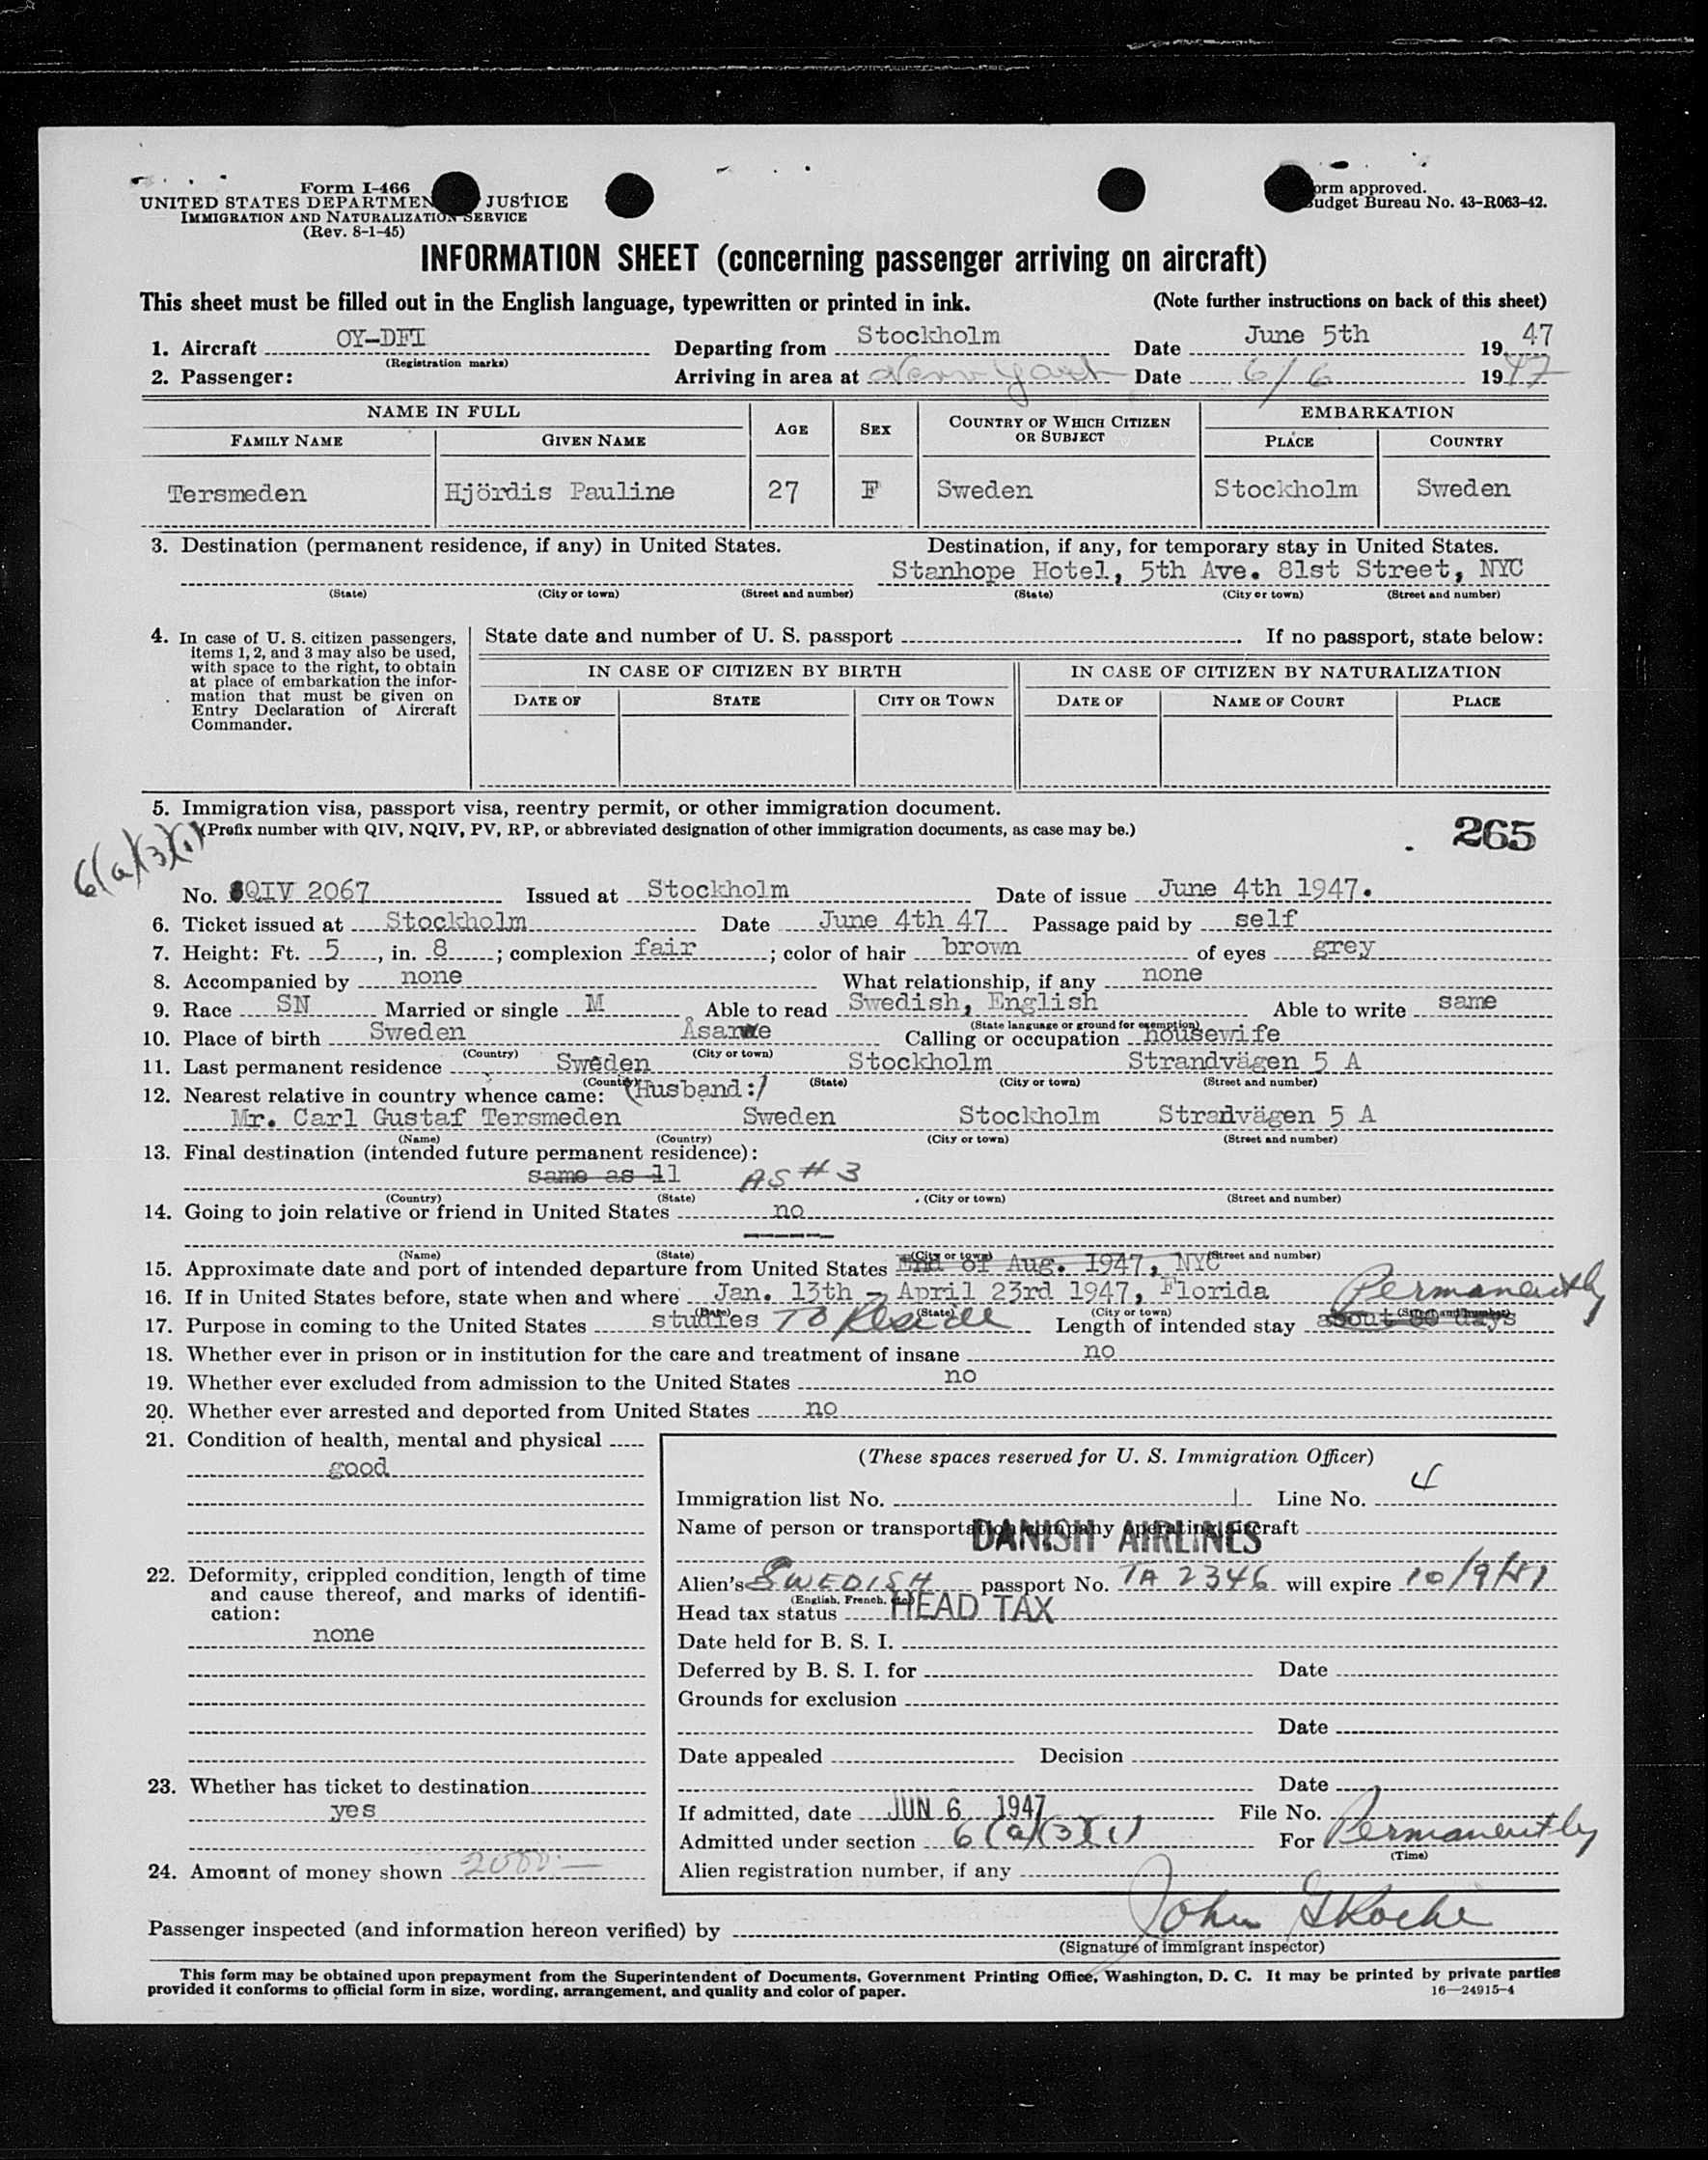 Form I-466
UNITED STATES DEPARTMEN JUSTICE
IMMIGRATION AND NATURALIZATION SERVICE
(Rev. 8-1-45)
orm approved.
udget Bureau No. 43-R063-42.
INFORMATION SHEET (concerning passenger arriving on aircraft)
This sheet must be filled out in the English language, typewritten or printed in ink. (Note further instructions on back of this sheet)
1. Aircraft OY-DFI Departing from Stockholm Date June 5th 19 47
(Registration marks)
2. Passenger: Arriving in area at New York Date 6/6 1947
NAME IN FULL AGE SEX COUNTRY OF WHICH CITIZEN OR SUBJECT EMBARKATION
FAMILY NAME GIVEN NAME PLACE COUNTRY
Tersmeden Hjördis Pauline 27 F Sweden Stockholm Sweden
3. Destination (permanent residence, if any) in United States. Destination, if any, for temporary stay in United States.
Stanhope Hotel, 5th Ave. 81st Street, NYC
(State) (City or town) (Street and number) (State) (City or town) (Street and number)
4. In case of U. S. citizen passengers, items 1, 2, and 3 may also be used, with space to the right, to obtain at place of embarkation the information that must be given on Entry Declaration of Aircraft Commander.
State date and number of U. S. passport If no passport, state below:
IN CASE OF CITIZEN BY BIRTH IN CASE OF CITIZEN BY NATURALIZATION
DATE OF STATE CITY OR TOWN DATE OF NAME OF COURT PLACE
5. Immigration visa, passport visa, reentry permit, or other immigration document.
(Prefix number with QIV, NQIV, PV, RP, or abbreviated designation of other immigration documents, as case may be.)
265
6(a)(3)(1)
No. QIV 2067 Issued at Stockholm Date of issue June 4th 1947.
6. Ticket issued at Stockholm Date June 4th 47 Passage paid by self
7. Height: Ft. 5, in. 8; complexion fair; color of hair brown of eyes grey
8. Accompanied by none What relationship, if any none
9. Race SN Married or single M Able to read Swedish, English Able to write same
(State language or ground for exemption)
10. Place of birth Sweden Calling or occupation housewife
(Country) (City or town)
11. Last permanent residence Sweden Stockholm Strandvägen 5 A
(Country) (State) (City or town) (Street and number)
12. Nearest relative in country whence came: (Husband:)
Mr. Carl Gustaf Tersmeden Sweden Stockholm Stradvägen 5 A
(Name) (Country) (City or town) (Street and number)
13. Final destination (intended future permanent residence):
same as 11 AS # 3
(Country) (State) (City or town) (Street and number)
14. Going to join relative or friend in United States no
(Name) (State) (City or town) (Street and number)
15. Approximate date and port of intended departure from United States End of Aug. 1947, NYC
16. If in United States before, state when and where Jan. 13th - April 23rd 1947, Florida
(Date) (State) (City or town) (Street and number)
Permanently
17. Purpose in coming to the United States studies TO Reside Length of intended stay about 80 days
18. Whether ever in prison or in institution for the care and treatment of insane no
19. Whether ever excluded from admission to the United States no
20. Whether ever arrested and deported from United States no
21. Condition of health, mental and physical
good
22. Deformity, crippled condition, length of time and cause thereof, and marks of identification:
none
23. Whether has ticket to destination
yes
24. Amount of money shown 2000.—
(These spaces reserved for U. S. Immigration Officer)
Immigration list No. 1 Line No. 4
Name of person or transportation company operating aircraft
DANISH AIRLINES
Alien's SWEDISH passport No. TA 2346 will expire 10/9/51
(English, French, etc.)
Head tax status HEAD TAX
Date held for B. S. I.
Deferred by B. S. I. for Date
Grounds for exclusion
Date
Date appealed Decision
Date
If admitted, date JUN 6 1947 File No.
Admitted under section 6(a)(3)(1) For Permanently
(Time)
Alien registration number, if any
Passenger inspected (and information hereon verified) by John G Roche
(Signature of immigrant inspector)
This form may be obtained upon prepayment from the Superintendent of Documents, Government Printing Office, Washington, D. C. It may be printed by private parties
provided it conforms to official form in size, wording, arrangement, and quality and color of paper.
16—24915-4